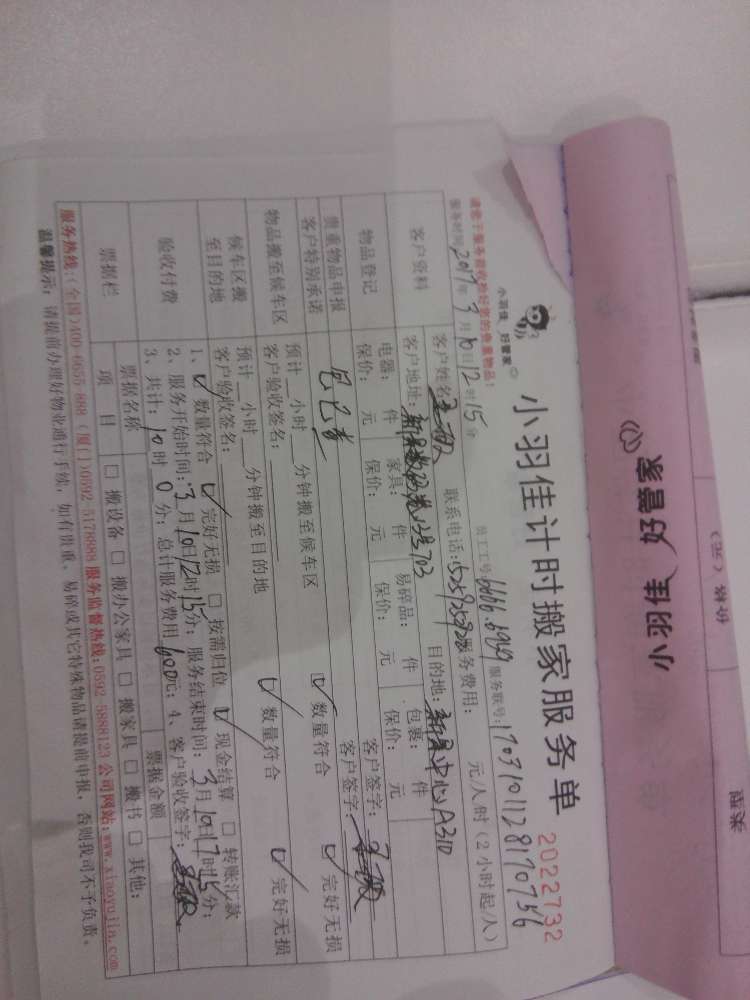 小羽佳 好管家
小羽佳 好管家
小羽佳计时搬家服务单 2022732
请您于服务前收捡好您的贵重物品!
员工号: 6666.6969 服务联号: 1703101128170756
服务时间: 2017年3月10日12时15分
客户资料 客户姓名: 联系电话: 服务费用: 元/人时(2小时起/人)
客户地址: 号703 目的地: 中心A310
物品登记 电器: 件 家具: 件 易碎品: 件 包裹: 件
保价: 元 保价: 元 保价: 元 保价: 元
贵重物品申报 客户签字:
客户特别承诺 客户签字:
物品搬至候车区 预计 小时 分钟搬至候车区 数量符合 完好无损
客户验收签名:
候车区搬至目的地 预计 小时 分钟搬至目的地 数量符合 完好无损
客户验收签名:
验收付费 1、数量符合 完好无损 按需归位 现金结算 转账汇款
2、服务开始时间: 3月10日12时15分; 服务结束时间: 3月10日17时15分;
3、共计: 10时0分; 总计服务费用 600元; 4、客户验收签字:
票据栏 票据名称 票据金额
项目 搬设备 搬办公家具 搬家具 搬书 其他:
服务热线:(全国)400-6655-888 (厦门)0592-5178888 服务监督热线:0592-5888123 公司网站:www.xiaoyujia.com
温馨提示: 请提前办理好物业通行手续, 如有贵重、易碎或其它特殊物品请提前申报, 否则我司不予负责。